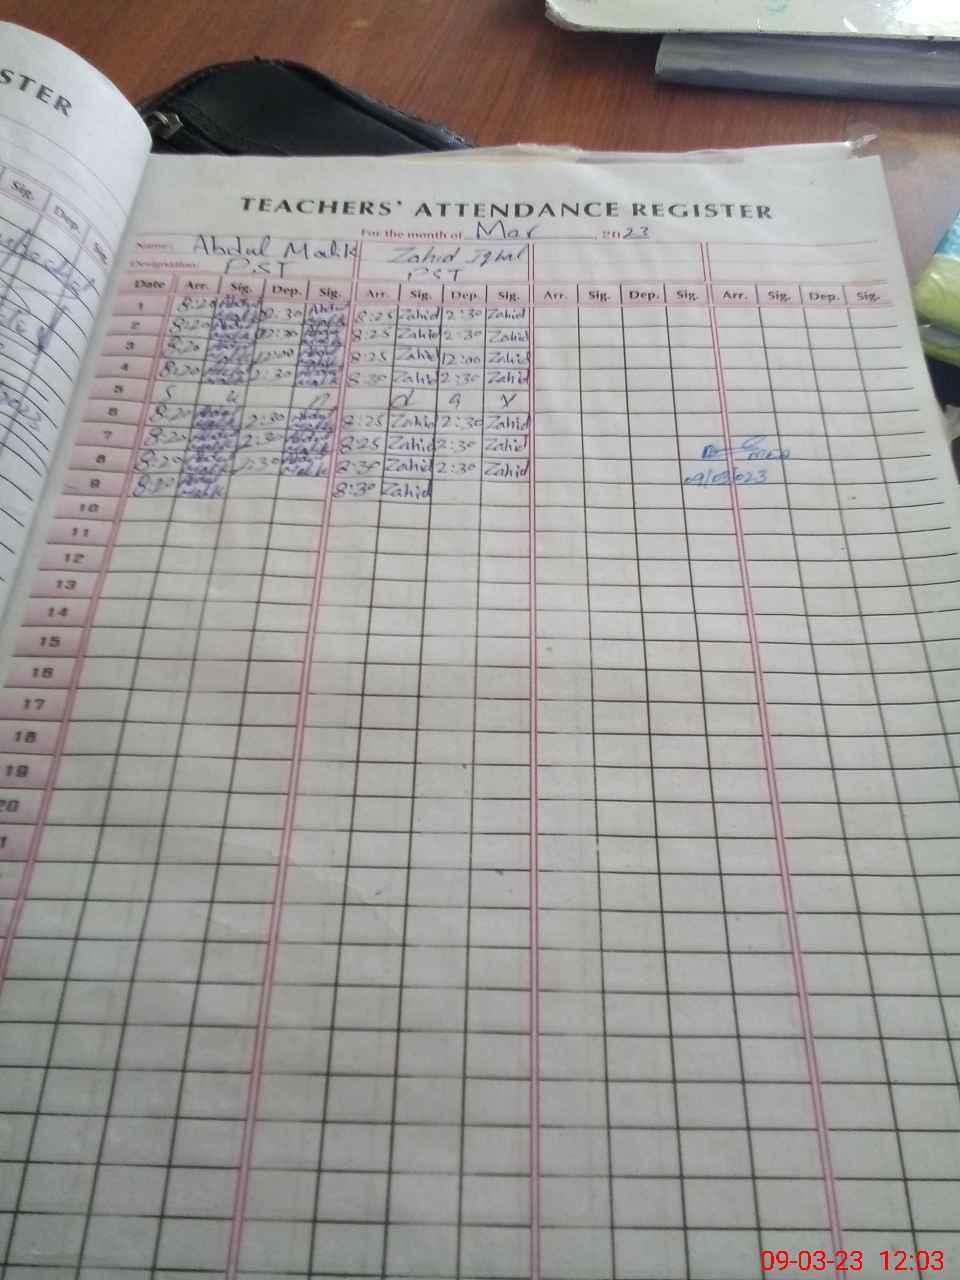 STER
Sig. Dep. Sig.
TEACHERS' ATTENDANCE REGISTER
For the month of Mar, 2023
Name: Abdul Malik Zahid Iqbal
Designation: PST PST
Date Arr. Sig. Dep. Sig. Arr. Sig. Dep. Sig. Arr. Sig. Dep. Sig. Arr. Sig. Dep. Sig.
1 8:20 Abdul Malik 2:30 Abdul Malik 8:25 Zahid 2:30 Zahid
2 8:20 Abdul Malik Abdul Malik 8:25 Zahid 2:30 Zahid
3 8:20 Abdul Malik 12:00 Abdul Malik 8:25 Zahid 12:00 Zahid
4 8:20 Abdul Malik 2:30 Abdul Malik 8:30 Zahid 2:30 Zahid
5 S u n d a y
6 8:20 Abdul Malik 2:30 Abdul Malik 8:25 Zahid 2:30 Zahid
7 8:20 Abdul Malik 2:30 Abdul Malik 8:25 Zahid 2:30 Zahid
8 8:20 Abdul Malik 2:30 Abdul Malik 8:30 Zahid 2:30 Zahid
9 8:20 Abdul Malik 8:30 Zahid
MEA
09/03/023
10
11
12
13
14
15
16
17
18
19
20
1
09-03-23 12:03